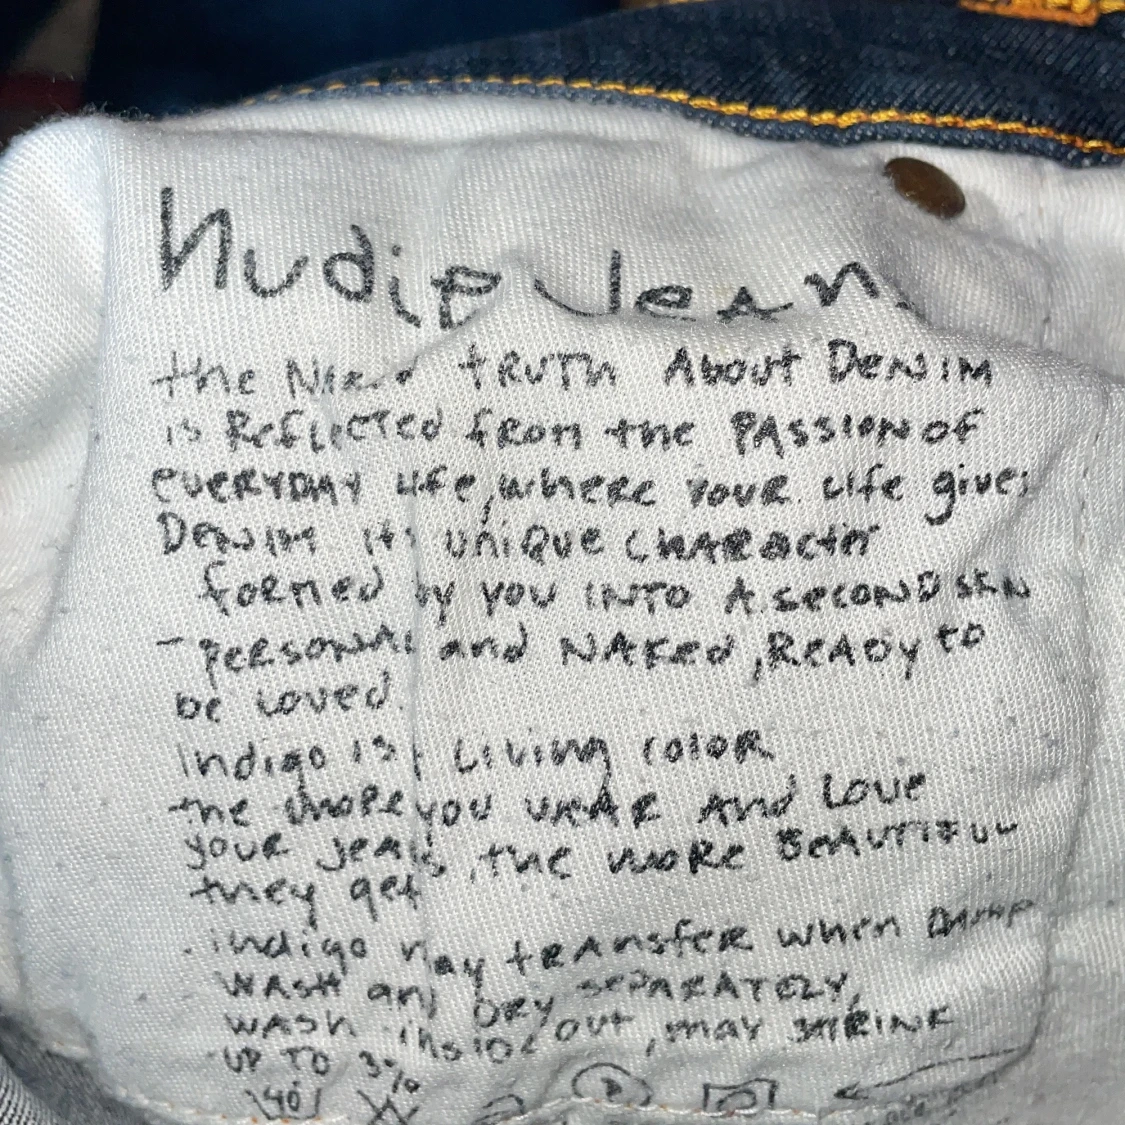 nudie Jean
the Naked tRUTh About DENIM
is ReflecTed fRom the PASSION of
eveRYDAY life, where YOUR life gives
DENIM its unique CHARActer
foRmed by YOU INTO A second skin
- peRsonal and NAKed, ReADy to
be loved.
Indigo is living coloR
the moRe you weAR And Love
youR jeans, the moRe BeAUTIFUL
they get
. indigo may tRAnsfeR when DAMP
WASH and DRY SePARATELY,
WASh inside out, may SHRINK
UP TO 3%
40